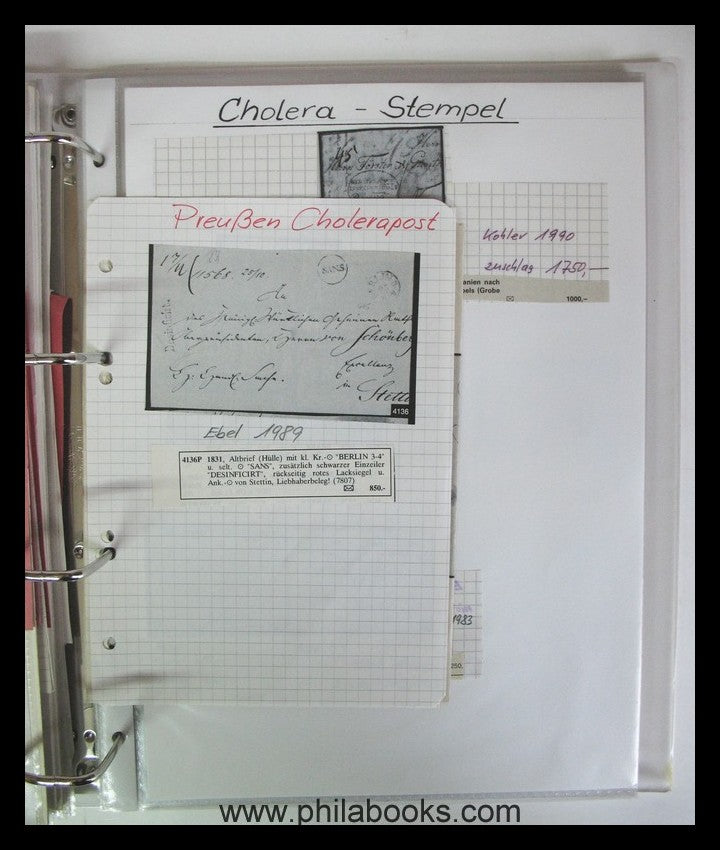 Cholera - Stempel
45
Herr
Preußen Cholerapost
Kohler 1990
zuschlag 1750,—
anien nach
bels (Grobe
1000,–
17/11 1568. 25/10
SANS
An
von Schönberg
Excellenz
in
Stettin
4136
Ebel 1989
4136P 1831, Altbrief (Hülle) mit kl. Kr.-⊙ "BERLIN 3-4"
u. selt. ⊙ "SANS", zusätzlich schwarzer Einzeiler
"DESINFICIRT", rückseitig rotes Lacksiegel u.
Ank.-⊙ von Stettin, Liebhaberbeleg! (7807)
✉ 850.-
1983
250.
www.philabooks.com